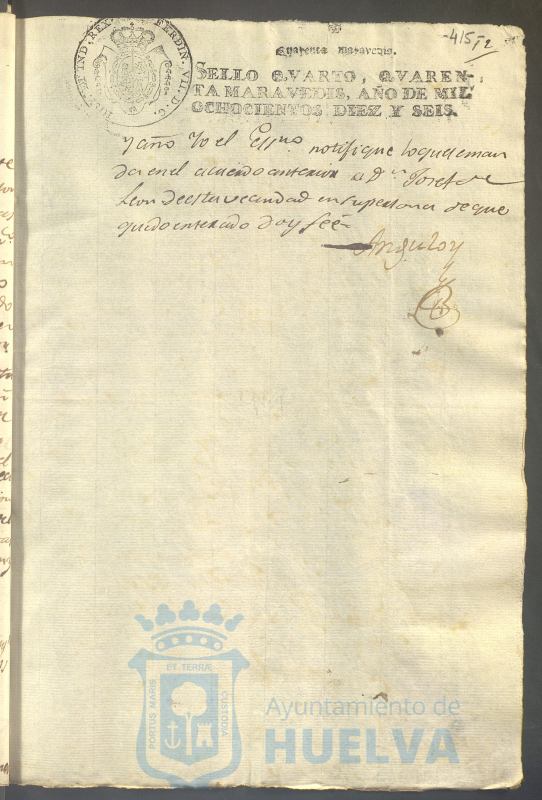 415/2
HISP. ET IND. REX FERDIN. VII. D. G.
Quarenta maravedis.
SELLO QVARTO, QVAREN-
TA MARAVEDIS, AÑO DE MIL
OCHOCIENTOS DIEZ Y SEIS.
y año Yo el Essno notifique lo que se man
da en el acuerdo anterior a Dn Josef de
Leon de esta vecindad en su persona de que
quedo enterado doy feé
Anguloy
PORTUS MARIS
ET TERRÆ
CUSTODIA
Ayuntamiento de
HUELVA